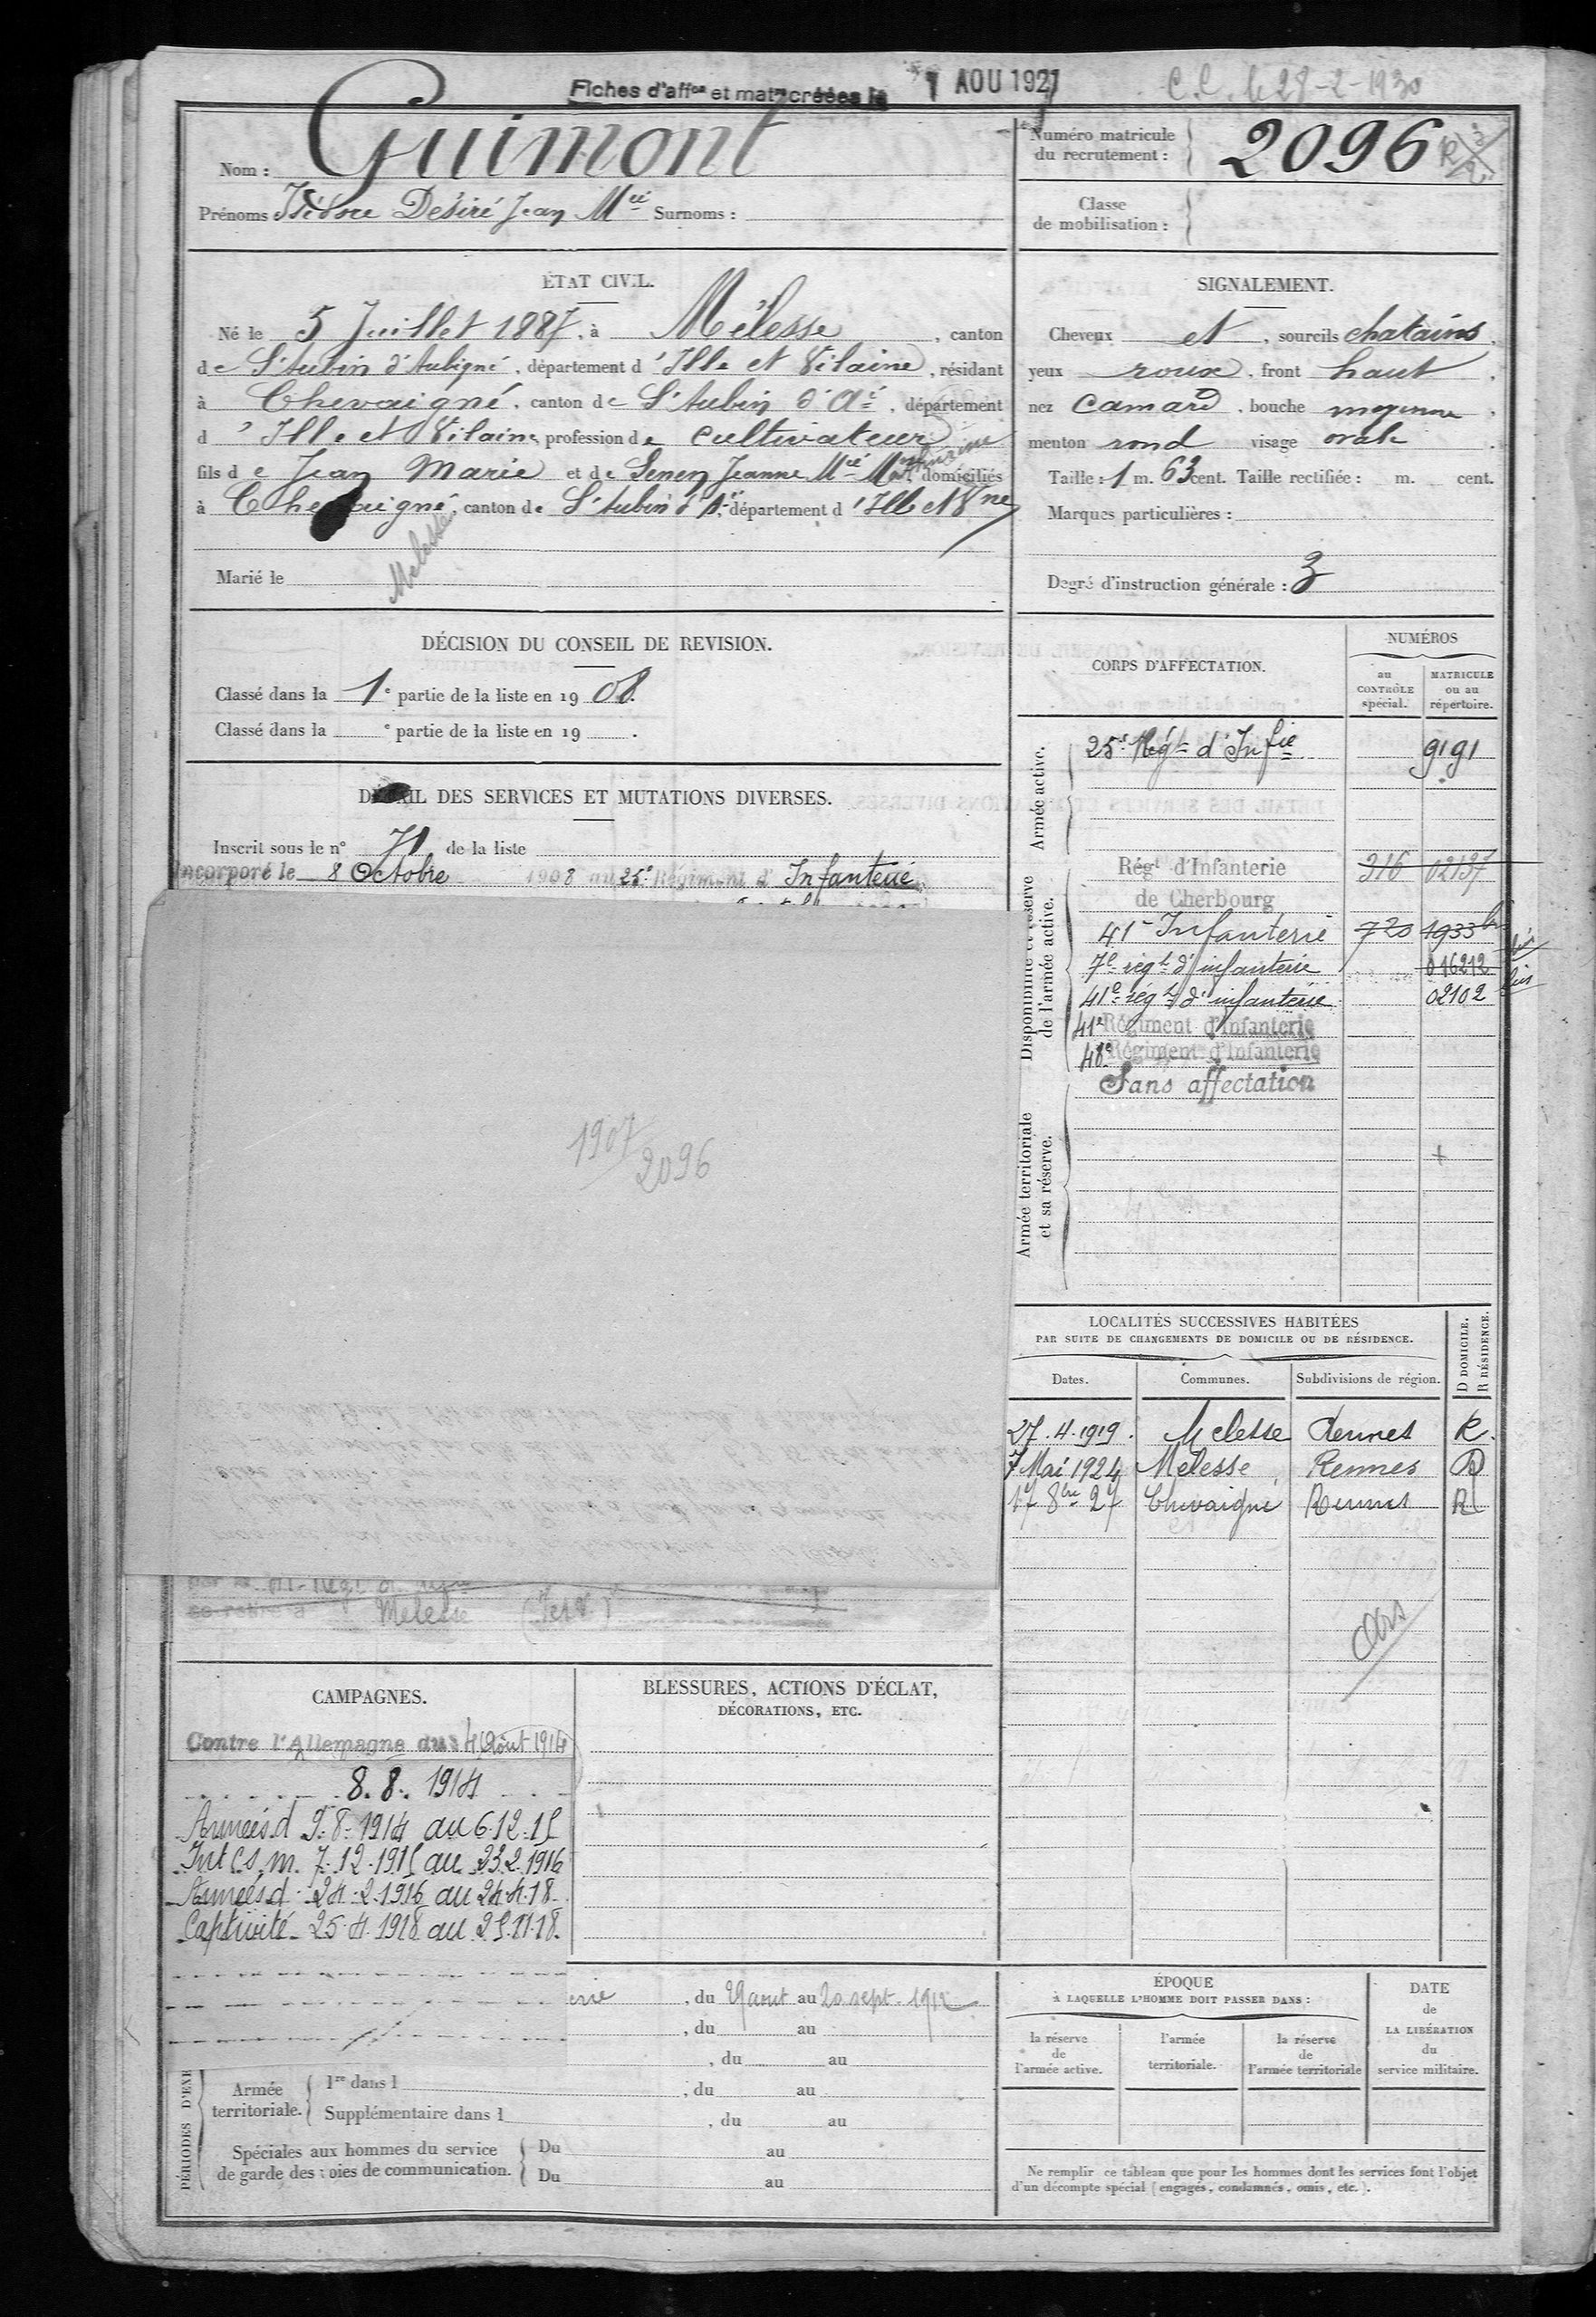 Fiches d'affon et matr créées le 1 AOU 1927
C.C. le 28-2-1930
Nom : Guimont
Prénoms Isidore Désiré Jean Mie Surnoms :
Numéro matricule du recrutement : 2096
Classe de mobilisation :
ÉTAT CIVIL.
Né le 5 Juillet 1887, à Mélesse, canton
de St Aubin d'Aubigné, département d'Ille et Vilaine, résidant
à Chevaigné, canton de St Aubin d'Aé, département
d'Ille et Vilaine, profession de cultivateur
fils de Jean Marie et de Jeanne Mie Mathurine domiciliés
à Chevaigné, canton de St Aubin d'A, département d'Ille et Vne
Melesse
Marié le
SIGNALEMENT.
Cheveux et, sourcils chatains,
yeux roux, front haut,
nez camard, bouche moyenne,
menton rond visage ovale.
Taille : 1 m. 63 cent. Taille rectifiée : m. cent.
Marques particulières :
Degré d'instruction générale : 3
DÉCISION DU CONSEIL DE REVISION.
Classé dans la 1e partie de la liste en 1908.
Classé dans la e partie de la liste en 19 .
DÉTAIL DES SERVICES ET MUTATIONS DIVERSES.
Inscrit sous le n° 71 de la liste
Incorporé le 8 Octobre 1908 au 25e Régiment d'Infanterie
1907
2096
se retire à Melesse
CORPS D'AFFECTATION.
NUMÉROS
au CONTRÔLE spécial.
MATRICULE ou au répertoire.
Armée active.
25e Régt d'Infie 9191
Disponibilité et réserve de l'armée active.
Régt d'Infanterie 316 02137
de Cherbourg
41e Infanterie 720 1933 bis
7e régt d'infanterie 016212
41e régt d'infanterie 02102 bis
41e Régiment d'Infanterie
48e Régiment d'Infanterie
Sans affectation
Armée territoriale et sa réserve.
LOCALITÉS SUCCESSIVES HABITÉES
PAR SUITE DE CHANGEMENTS DE DOMICILE OU DE RÉSIDENCE.
D DOMICILE.
R RÉSIDENCE.
Dates. Communes. Subdivisions de région.
27.4.1919. Melesse Rennes R.
7 Mai 1924 Melesse Rennes D
17 8bre 27 Chevaigné Rennes R
CAMPAGNES.
Contre l'Allemagne du 4 Août 1914
8.8.1914
Armées d 9.8.1914 au 6.12.15
Int Cs. m. 7.12.1915 au 23.2.1916
Armées d 24.2.1916 au 24.4.18
Captivité 25.4.1918 au 25.11.18.
BLESSURES, ACTIONS D'ÉCLAT,
DÉCORATIONS, ETC.
erie, du 29 aout au 20 sept. 1912
, du au
, du au
PÉRIODES D'EXE
Armée territoriale. 1re dans l , du au
Supplémentaire dans l , du au
Spéciales aux hommes du service Du au
de garde des voies de communication. Du au
ÉPOQUE
À LAQUELLE L'HOMME DOIT PASSER DANS :
la réserve de l'armée active.
l'armée territoriale.
la réserve de l'armée territoriale
DATE de LA LIBÉRATION du service militaire.
Ne remplir ce tableau que pour les hommes dont les services font l'objet
d'un décompte spécial (engagés, condamnés, omis, etc.).